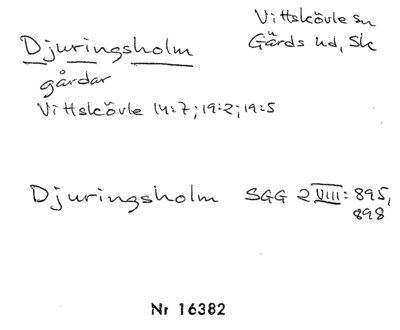 Vittskövle sn
Djuringsholm Gärds hd, Sk
gårdar
Vittskövle 14:7; 19:2; 19:5
Djuringsholm SGG 2 VIII: 895,
898
Nr 16382